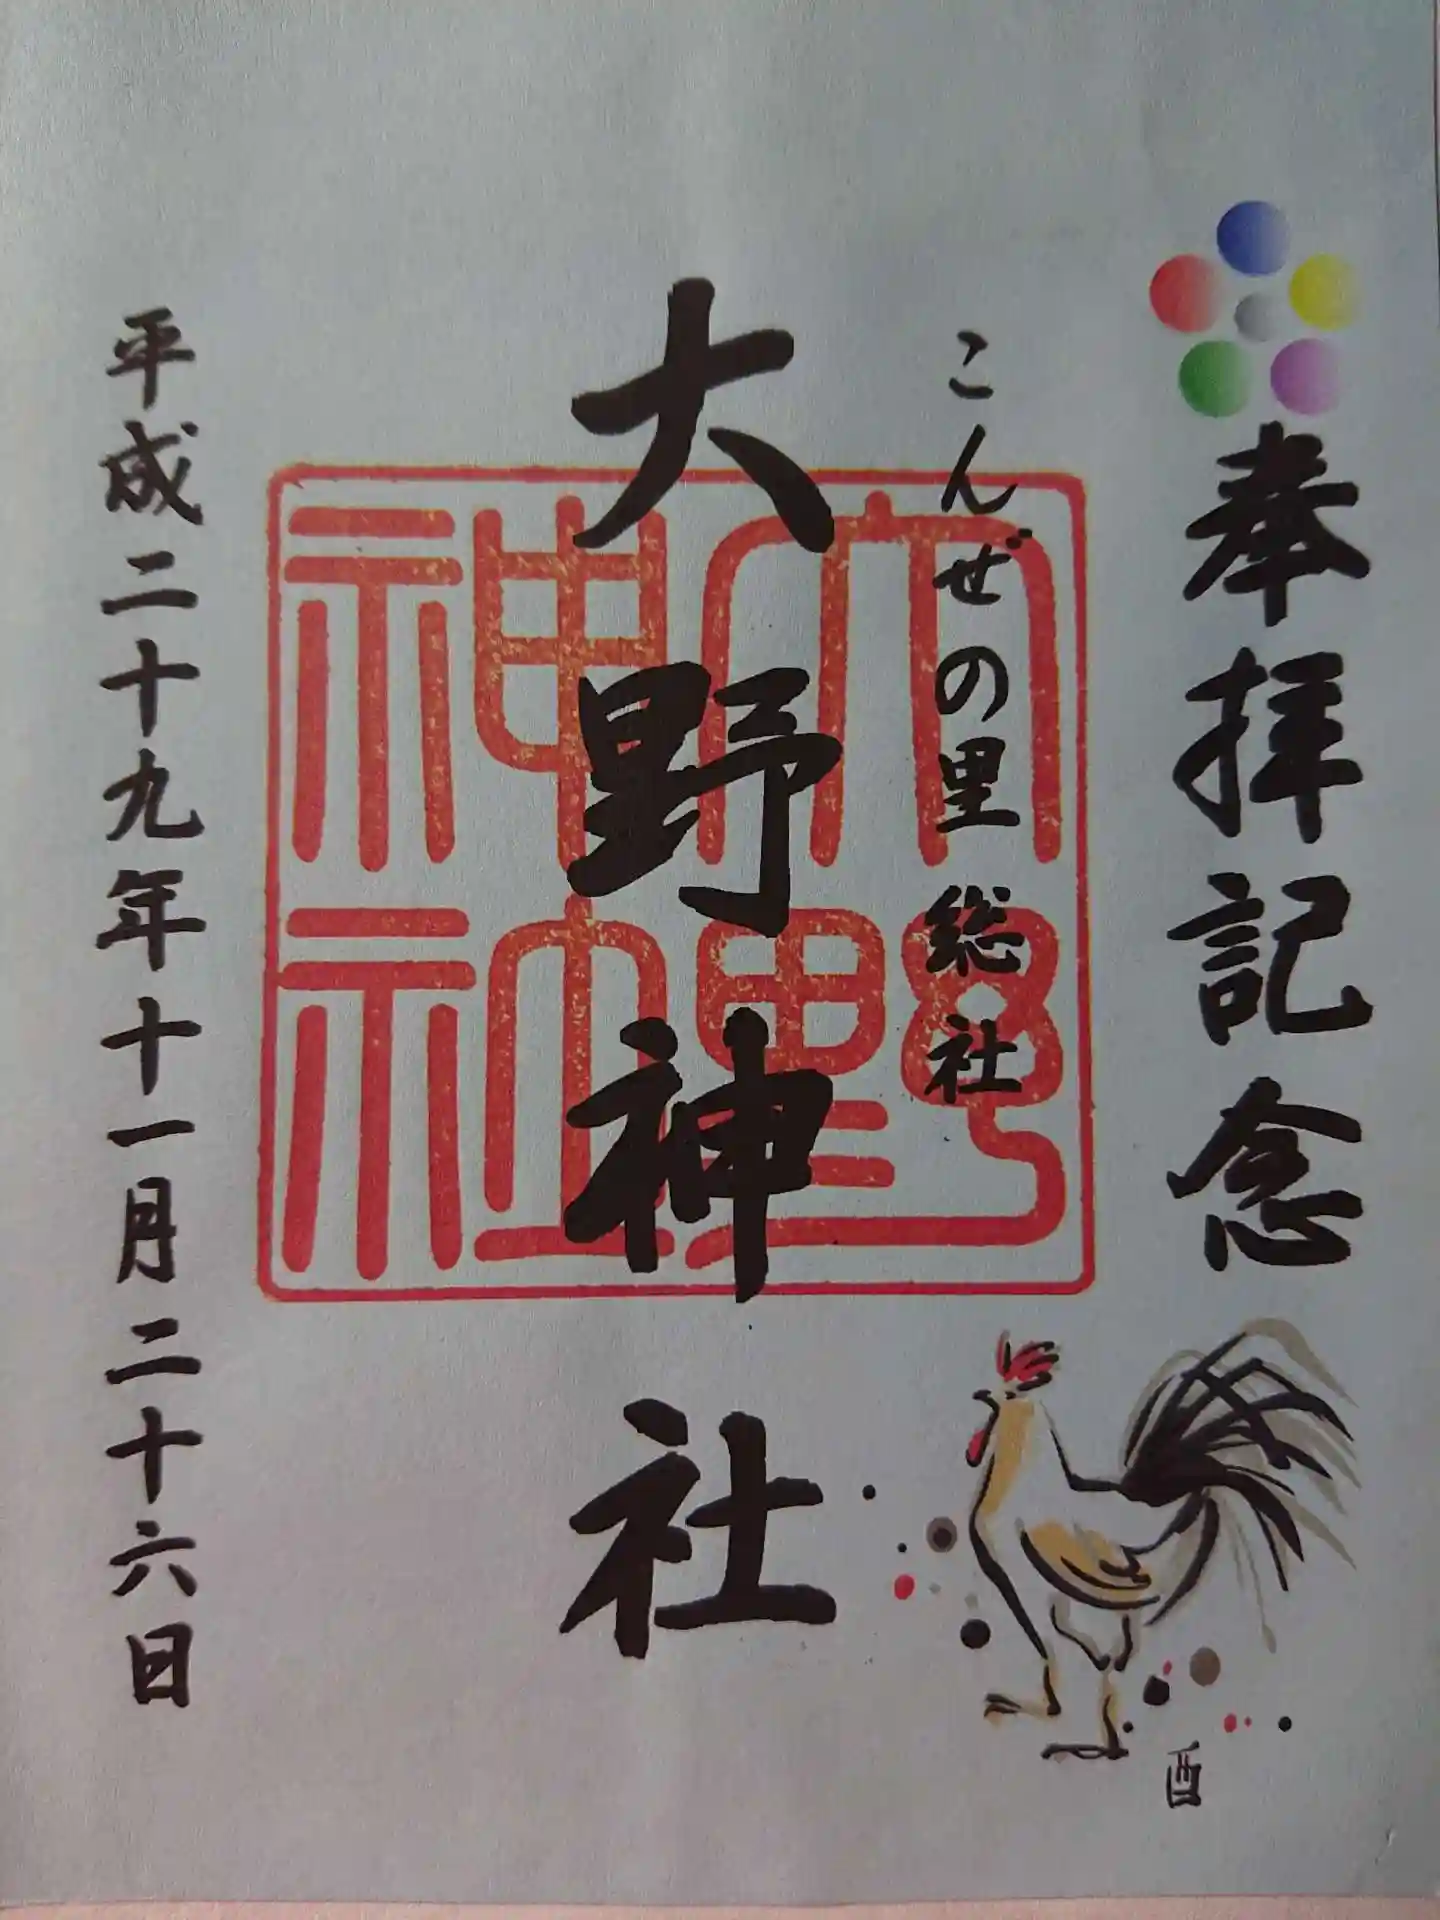 奉拝記念
こんぜの里 総社
大野神社
大野神社
平成二十九年十一月二十六日
酉